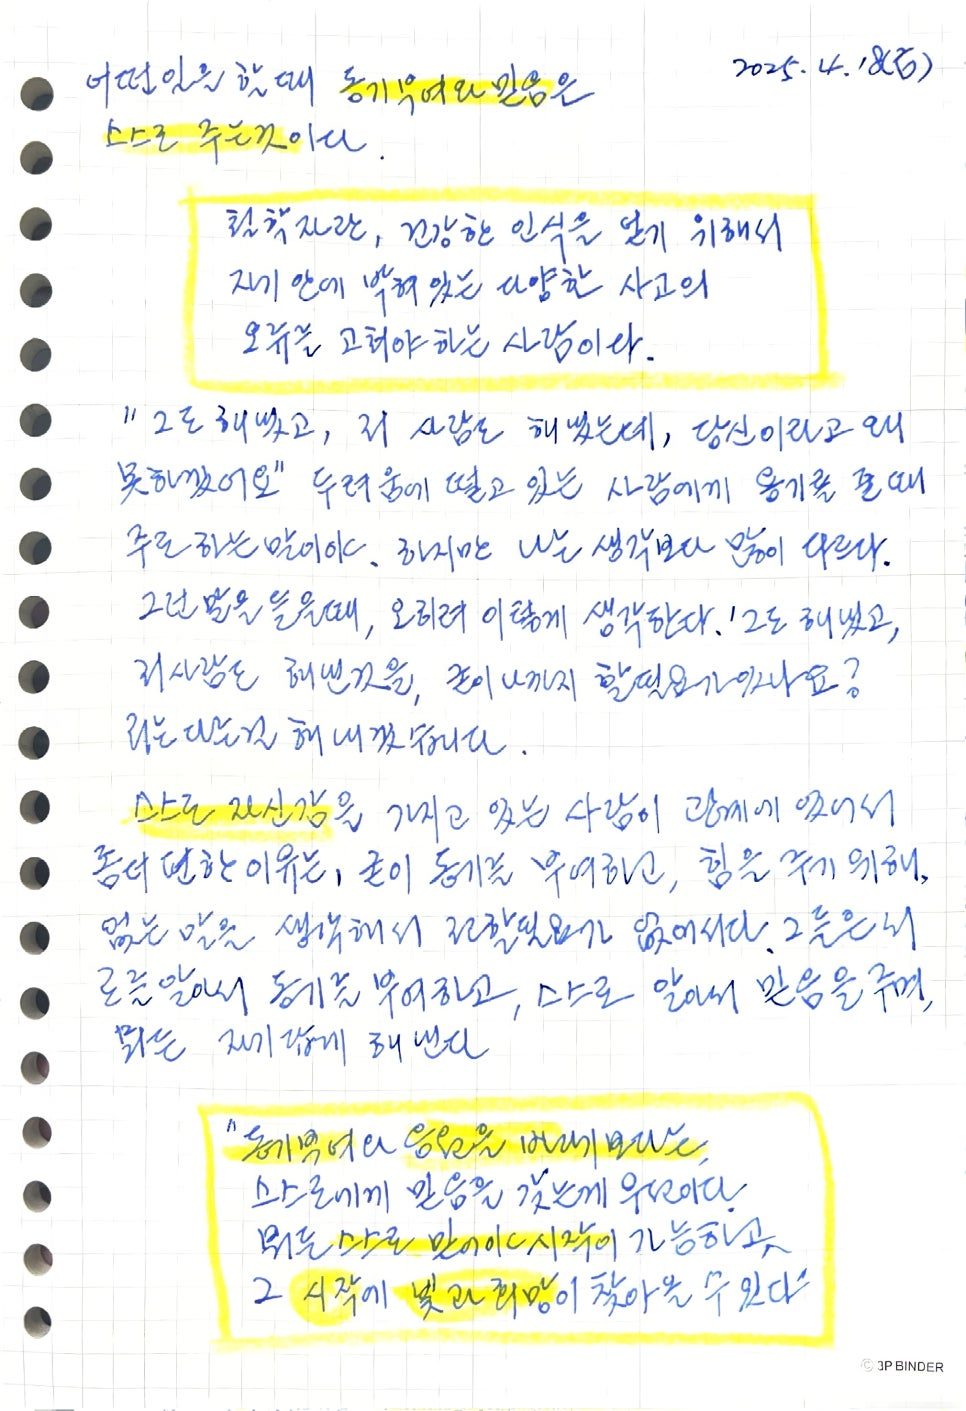 2025. 4. 18(금)
어떤일을 할때 동기부여와 믿음은
스스로 주는것이다.
철학자란, 건강한 인식을 얻기 위해서
자기 안에 박혀있는 다양한 사고의
오류를 고쳐야하는 사람이다.
"그도 해냈고, 저 사람도 해냈는데, 당신이라고 왜
못하겠어요" 두려움에 떨고 있는 사람에게 용기를 줄때
주로 하는말이야. 하지만 나는 생각보다 많이 다르다.
그런 말을 들을때, 오히려 이렇게 생각한다. '그도 해냈고,
저사람도 해낸것을, 굳이 나까지 할필요가있나요?
저는 다른걸 해내겠습니다.
스스로 자신감을 가지고 있는 사람이 관계에 있어서
좀더 편한 이유는, 굳이 동기를 부여하고, 힘을 주기 위해,
없는 말을 생각해서 전할필요가 없어서다. 그들은 서
로를 알아서 동기를 부여하고, 스스로 알아서 믿음을 주며,
뭐든 자기답게 해낸다
"동기부여나 응원을 바라기보다는,
스스로에게 믿음을 갖는게 우선이다.
뭐든 스스로 믿어야 시작이 가능하고,
그 시작에 빛과 희망이 찾아올 수 있다"
© 3P BINDER